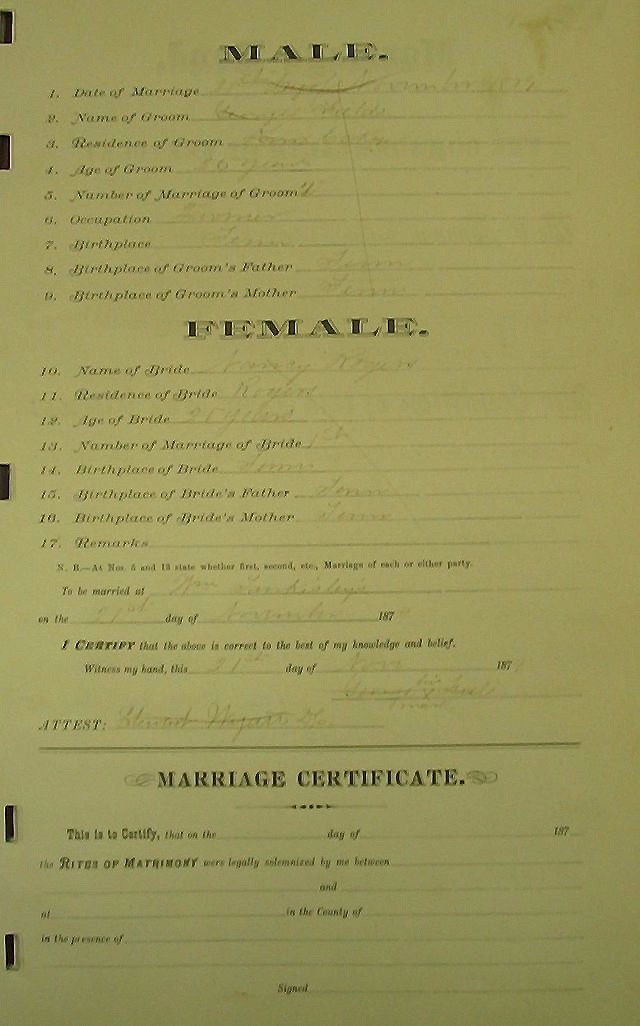 MALE.
1. Date of Marriage November 1879
2. Name of Groom
3. Residence of Groom
4. Age of Groom 26 years
5. Number of Marriage of Groom
6. Occupation Farmer
7. Birthplace Tenn
8. Birthplace of Groom's Father Tenn
9. Birthplace of Groom's Mother Tenn
FEMALE.
10. Name of Bride Nancy Rogers
11. Residence of Bride Rogers
12. Age of Bride years
13. Number of Marriage of Bride 1st
14. Birthplace of Bride Tenn
15. Birthplace of Bride's Father Tenn
16. Birthplace of Bride's Mother Tenn
17. Remarks
N. B.—At Nos. 5 and 13 state whether first, second, etc., Marriage of each or either party.
To be married at Wm
on the 21st day of November 187
I CERTIFY that the above is correct to the best of my knowledge and belief.
Witness my hand, this 21st day of Nov 187
his
mark
ATTEST: Stewart Wyatt DC
MARRIAGE CERTIFICATE.
This is to Certify, that on the day of 187
the RITES OF MATRIMONY were legally solemnized by me between
and
at in the County of
in the presence of
Signed